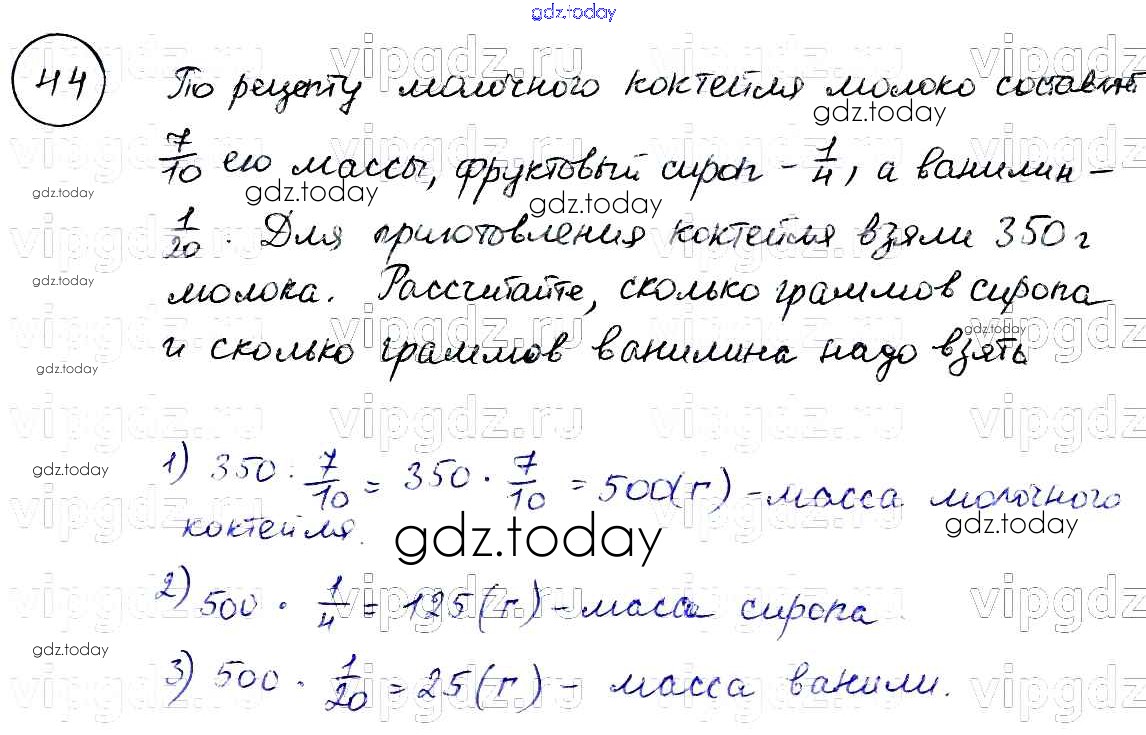 gdz.today
44
По рецепту молочного коктейля молоко составляет
7/10 его массы, фруктовый сироп - 1/4, а ванилин -
1/20. Для приготовления коктейля взяли 350 г
молока. Рассчитайте, сколько граммов сиропа
и сколько граммов ванилина надо взять
1) 350 : 7/10 = 350 · 7/10 = 500(г) - масса молочного
коктейля.
2) 500 · 1/4 = 125(г) - масса сиропа
3) 500 · 1/20 = 25(г) - масса ванили.
gdz.today
gdz.today
gdz.today
gdz.today
gdz.today
gdz.today
gdz.today
gdz.today
gdz.today
gdz.today
gdz.today
gdz.today
vipgdz.ru
vipgdz.ru
vipgdz.ru
vipgdz.ru
vipgdz.ru